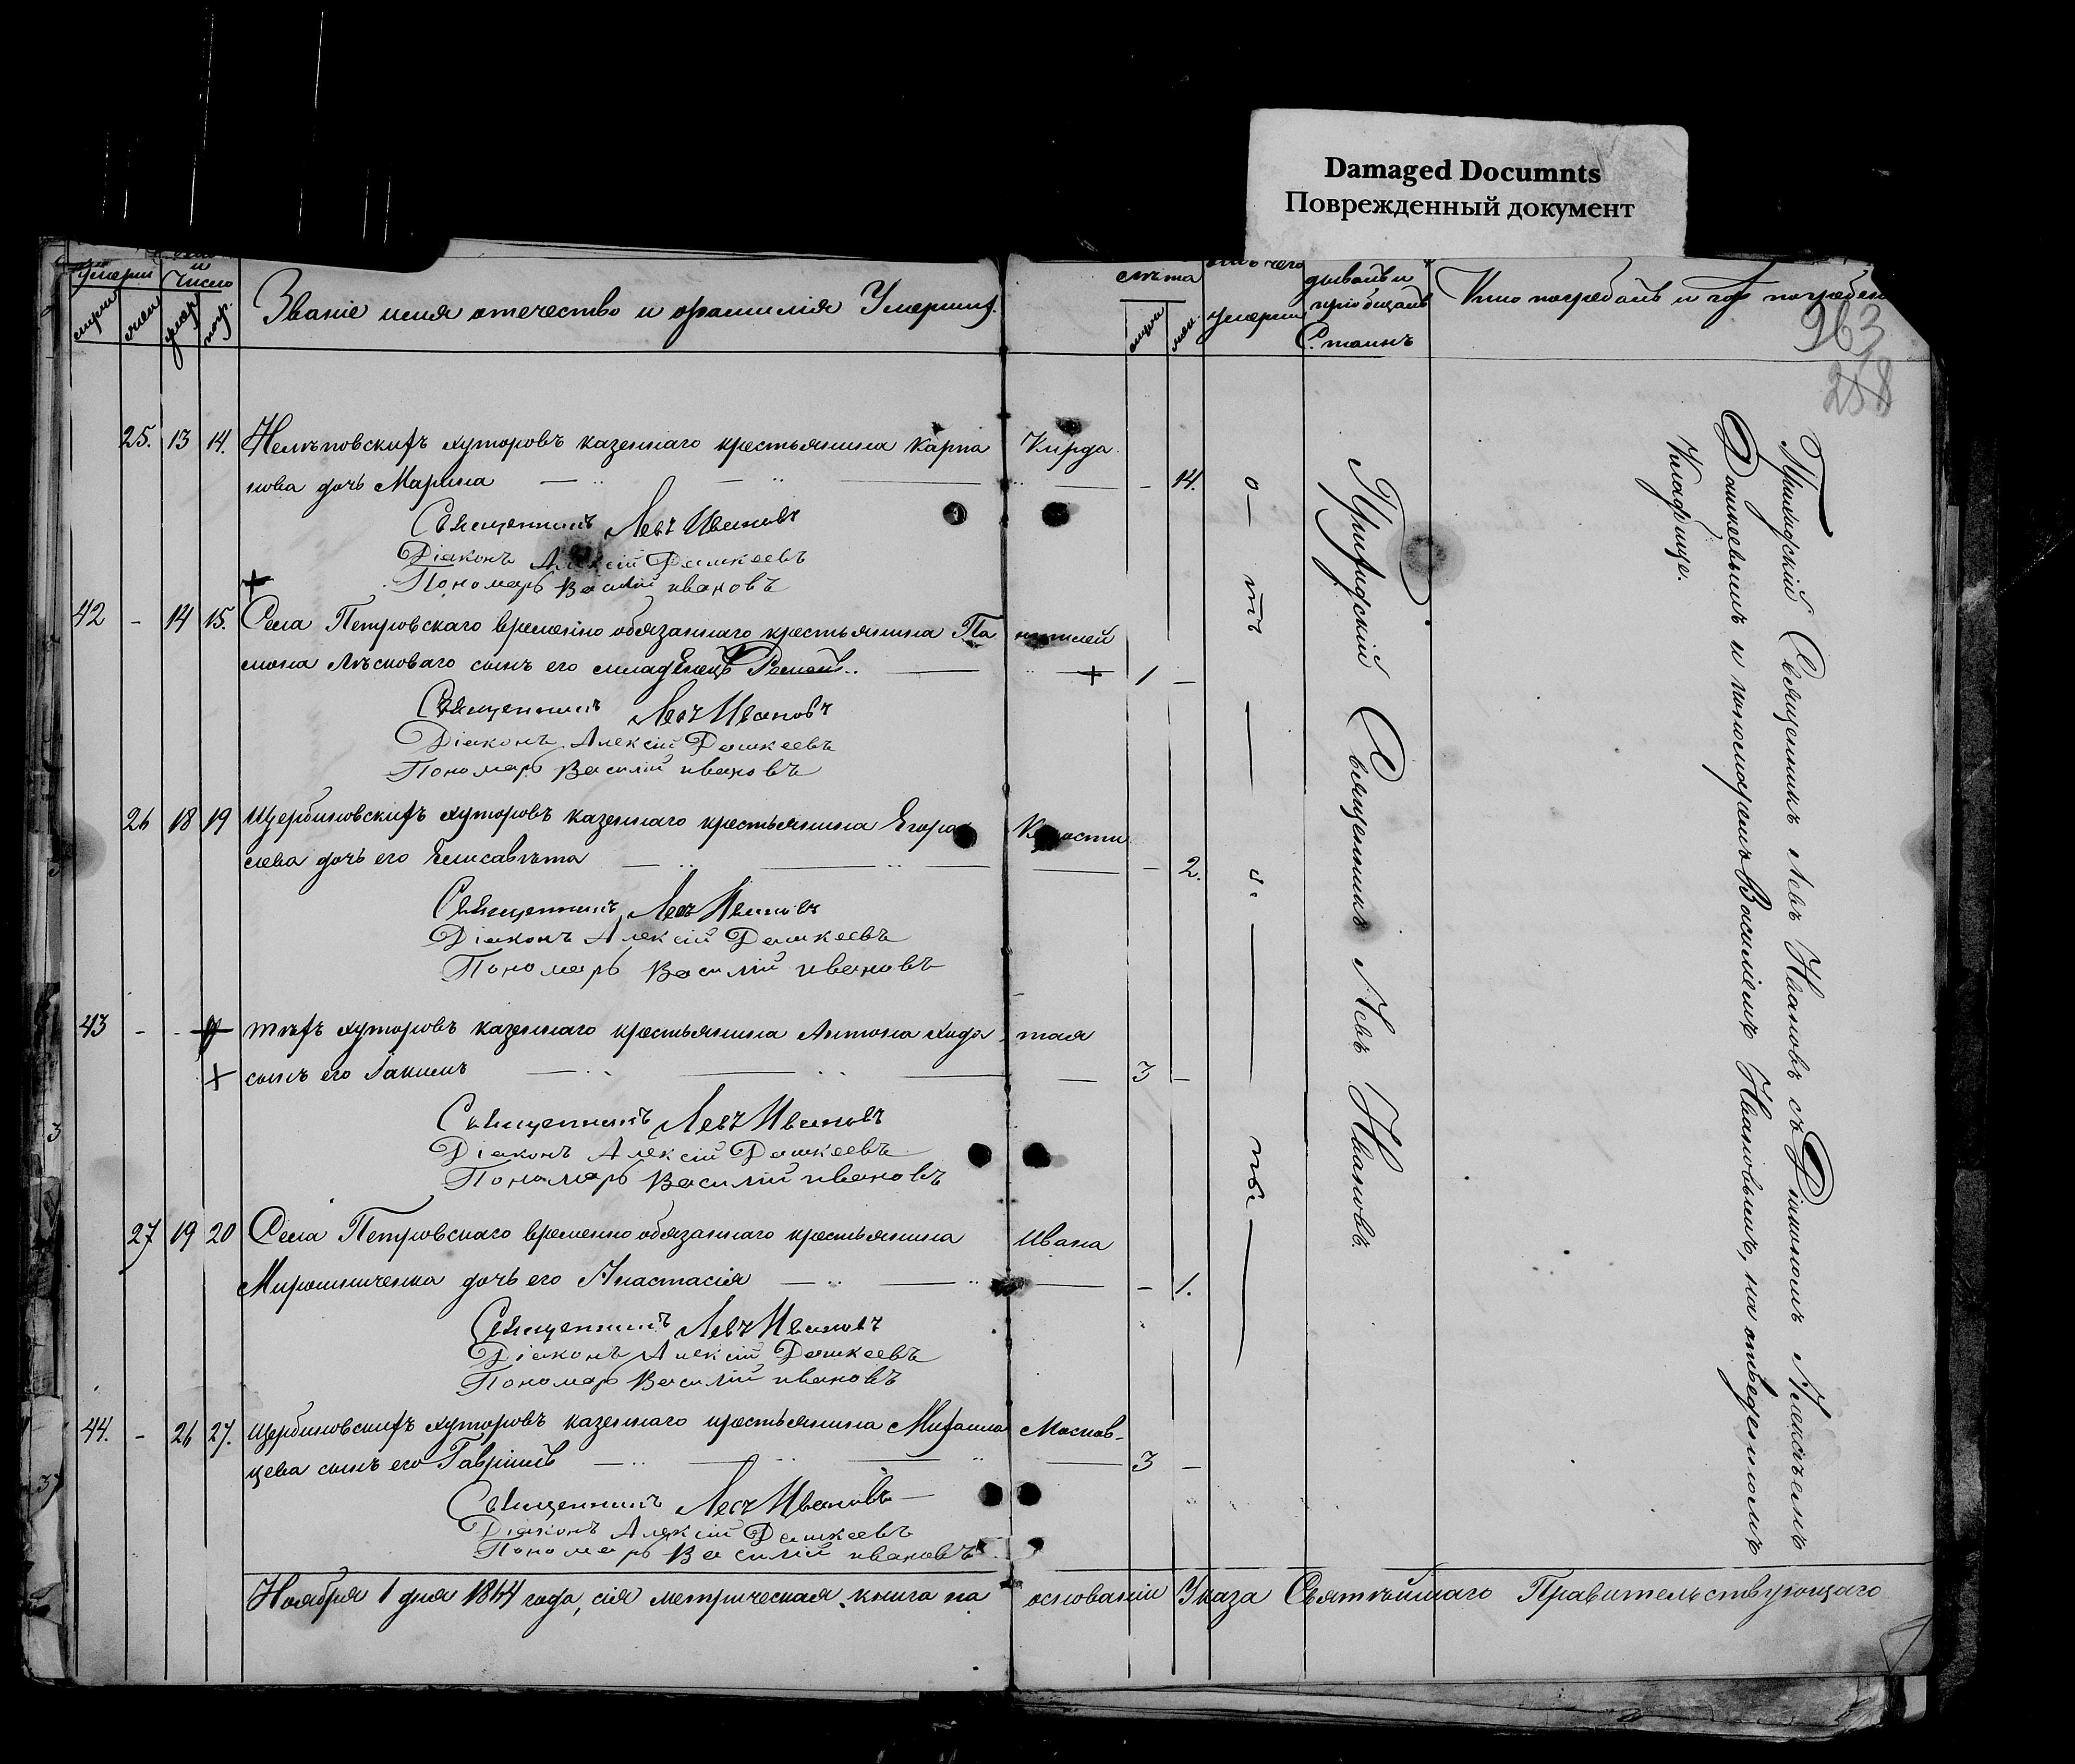 Damaged Documnts
Повреждённый документ
Званіе имя отечество и фамилія Умершихъ.
лѣта
умерли
С. таинъ
Кто погребалъ и гдѣ погребены
963
258
25. 13 14. Нелѣповскихъ хуторовъ казеннаго крестьянина Карпа Кирда
нова дочь Марина - 14.
Священникъ Левъ Ивановъ
Діаконъ Алексій Дашкеевъ
Пономарь Василій Ивановъ
42 - 14 15. Села Петровскаго временно обязаннаго крестьянина
сынъ его младенецъ Романъ 1 -
Священникъ Левъ Ивановъ
Діаконъ Алексій Дашкеевъ
Пономарь Василій Ивановъ
26 18 19 Щербиновскихъ хуторовъ казеннаго крестьянина Егора
дочь его Елисавѣта - 2.
Священникъ Левъ Ивановъ
Діаконъ Алексій Дашкеевъ
Пономарь Василій Ивановъ
43 - - тѣхъ хуторовъ казеннаго крестьянина Антона
сынъ его Іакимъ 3 -
Священникъ Левъ Ивановъ
Діаконъ Алексій Дашкеевъ
Пономарь Василій Ивановъ
27 19 20 Села Петровскаго временно обязаннаго крестьянина Ивана
Мирошниченка дочь его Анастасія - 1.
Священникъ Левъ Ивановъ
Діаконъ Алексій Дашкеевъ
Пономарь Василій Ивановъ
44. - 26 27. Щербиновскихъ хуторовъ казеннаго крестьянина Михаила Москов-
цева сынъ его Гавріилъ 3 -
Священникъ Левъ Ивановъ
Діаконъ Алексій Дашкеевъ
Пономарь Василій Ивановъ
Приходскій Священникъ Левъ Ивановъ.
Приходскій Священникъ Левъ Ивановъ съ Діакономъ Алексѣемъ
Дашкеевымъ и пономаремъ Василіемъ Ивановымъ, на отведенномъ
Кладбище.
Ноября 1 дня 1864 года, сія метрическая книга на основаніи Указа Святѣйшаго Правительствующаго